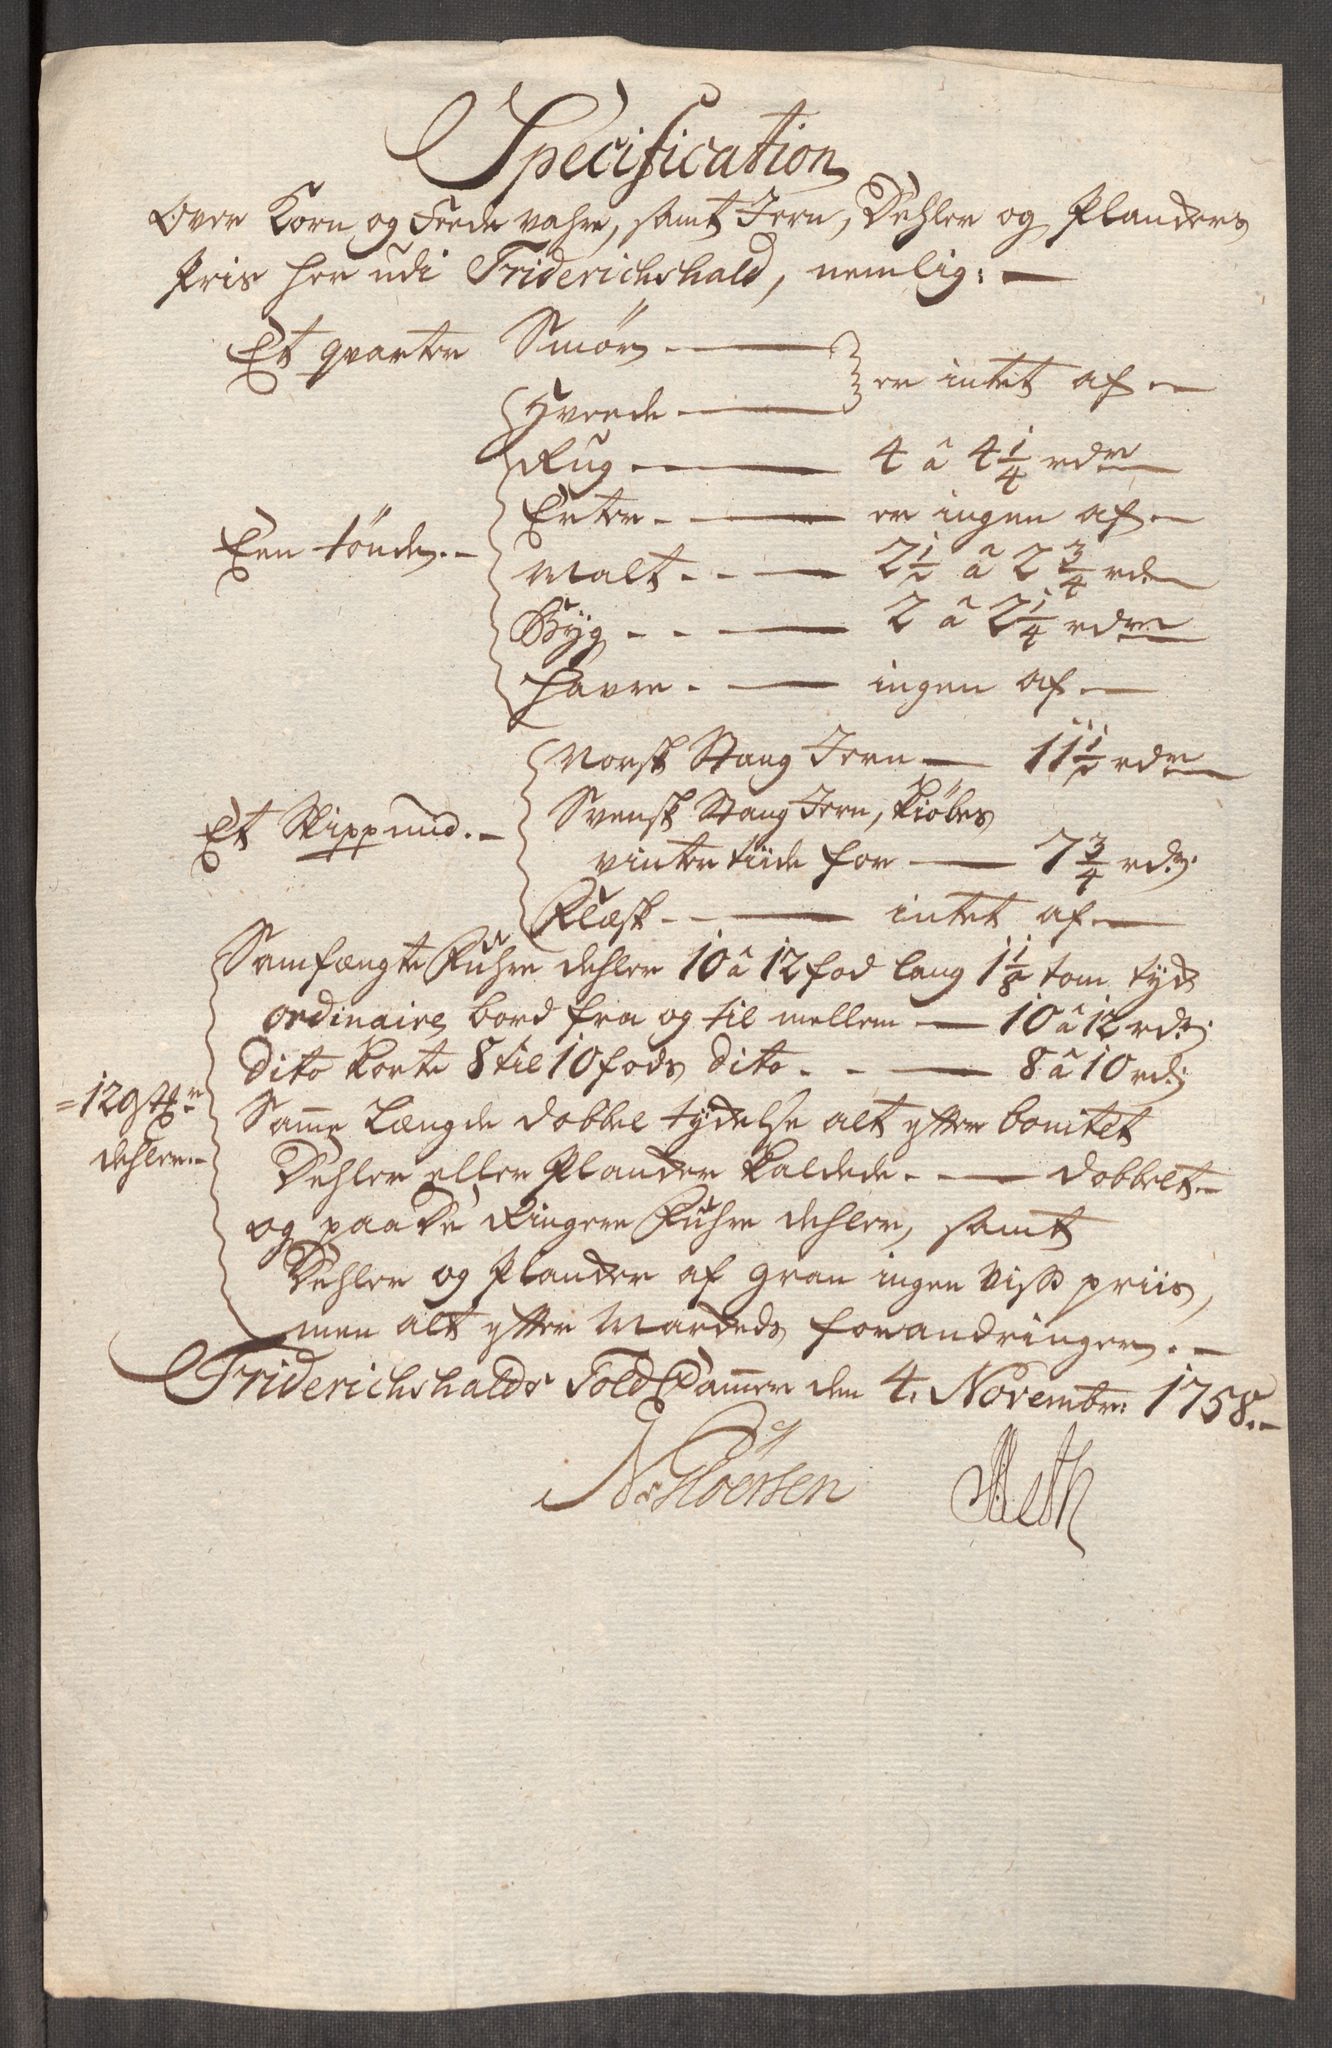 Specification
Over Korn og Feede vahre, samt Jern, Dehler og Planckers
Priis her udi Friderichshald, nemlig: —
Et qvarter Smør. — er intet af. —
Hvede. —
Rug. — 4 â 4 1/4 rdr
Een tønde. — Erter. — er ingen af. —
Malt. — 2 1/2 â 2 3/4 rdr
Byg. — 2 â 2 1/4 rdr
Havre. — ingen af. —
Norsk Stang Jern — 11 1/2 rdr
Et Skippund. — Svensk Stang Jern, kiøbes
vinter tiide for — 7 3/4 rdr.
Flæsk. — intet af. —
Samfængte Fuhre dehler 10 â 12 fod lang 1 1/8 tom tyck
ordinaire bord fra og til mellem — 10 â 12 rdr.
dito korte 8 til 10 fods dito. — 8 â 10 rd.
= 129 st.r dehler. — Samme Længde dobbel tydelse alt efter bonitet
Dehler eller Plancker kaldede. — dobbelt. —
og paa De Ringere Fuhre dehler, samt
Dehler og Plancker af gran ingen viss priis,
men alt efter Marckeds forandringer. —
Friderichshalds Told Cammer den 4. Novembr: 1758. —